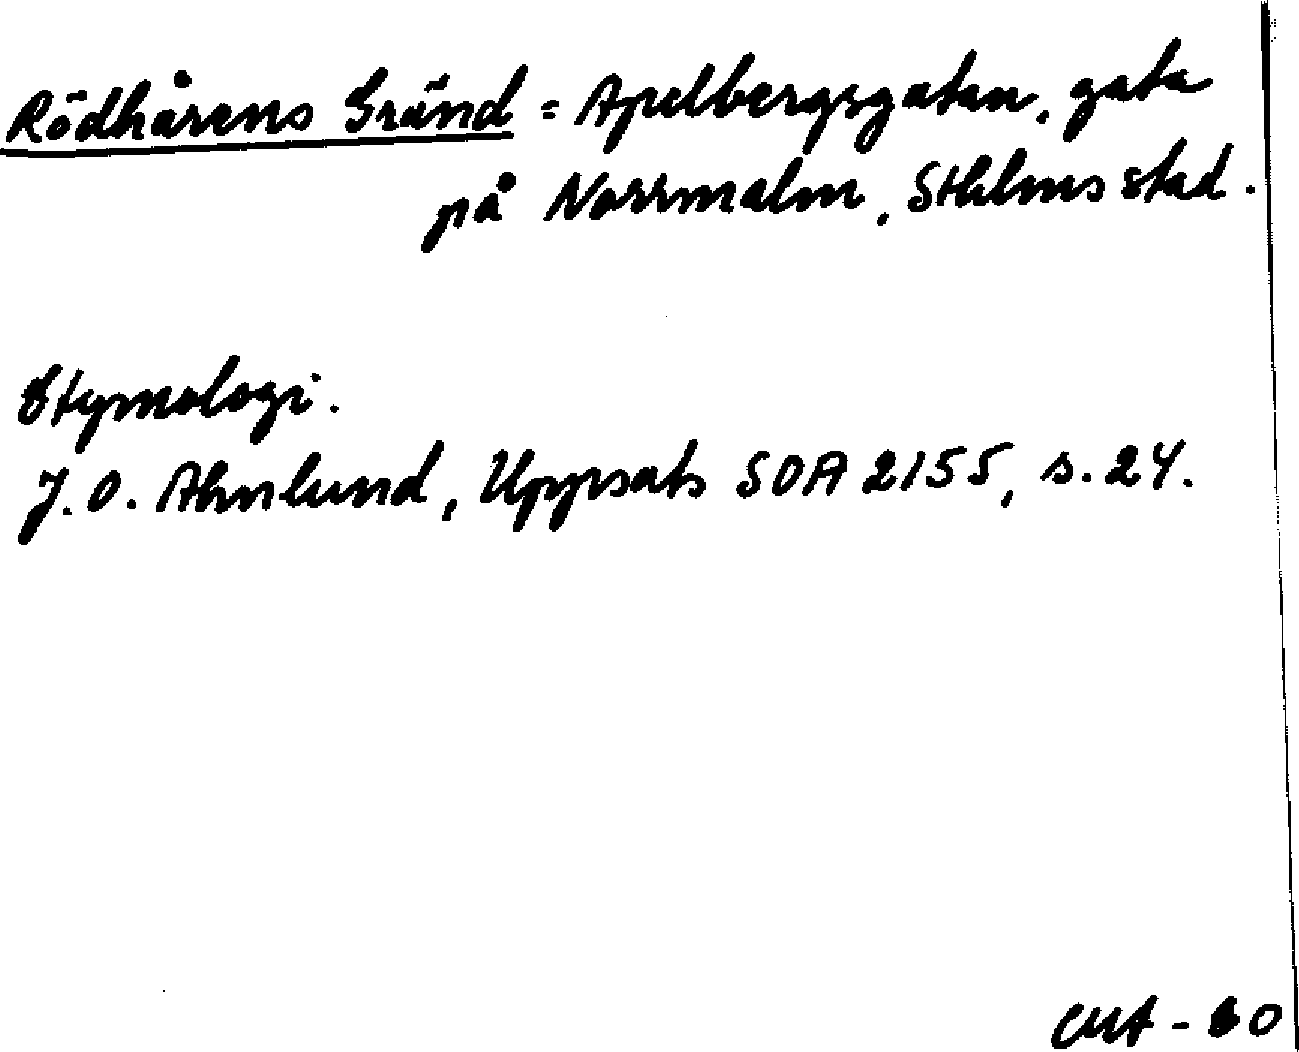 Rödhårens Gränd = Apelbergsgatan, gata
på Norrmalm, Sthlms stad.
Etymologi.
J.O. Ahnlund, Uppsats SOA 2155, s. 24.